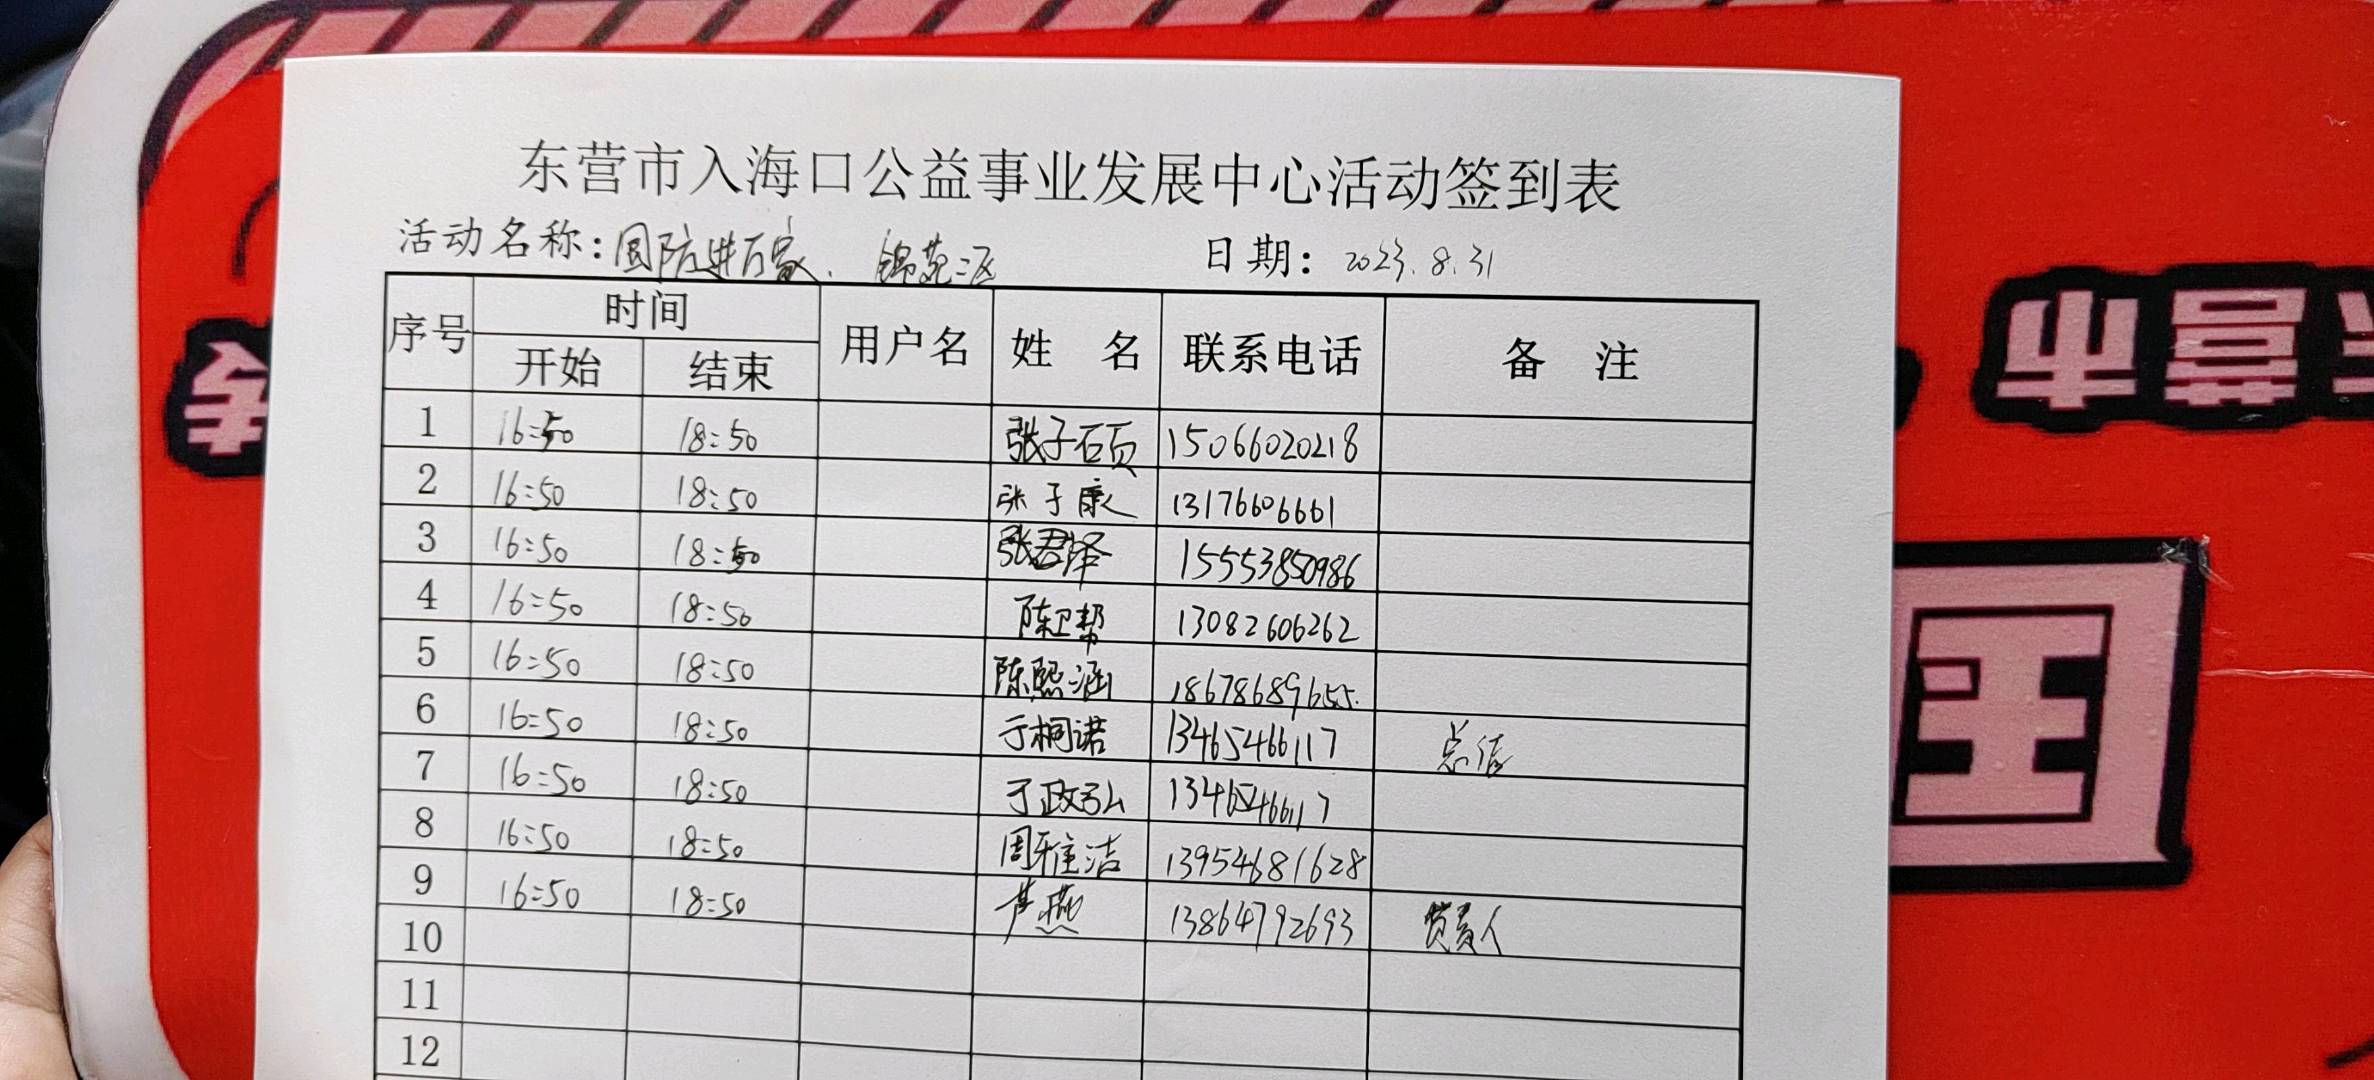 东营市入海口公益事业发展中心活动签到表
活动名称：国防进万家、锦苑二区 日期：2023.8.31
序号 时间 用户名 姓 名 联系电话 备 注
开始 结束
1 16:50 18:50 张子硕 15066020218
2 16:50 18:50 张子康 13176606661
3 16:50 18:50 张君泽 15553850986
4 16:50 18:50 陈卫帮 13082606262
5 16:50 18:50 陈熙涵 18678689655.
6 16:50 18:50 于桐诺 13465466117
7 16:50 18:50 于政弘 13465466117
8 16:50 18:50 周雅洁 13954681628
9 16:50 18:50 芦燕 13864792693 负责人
10
11
12
营市
国